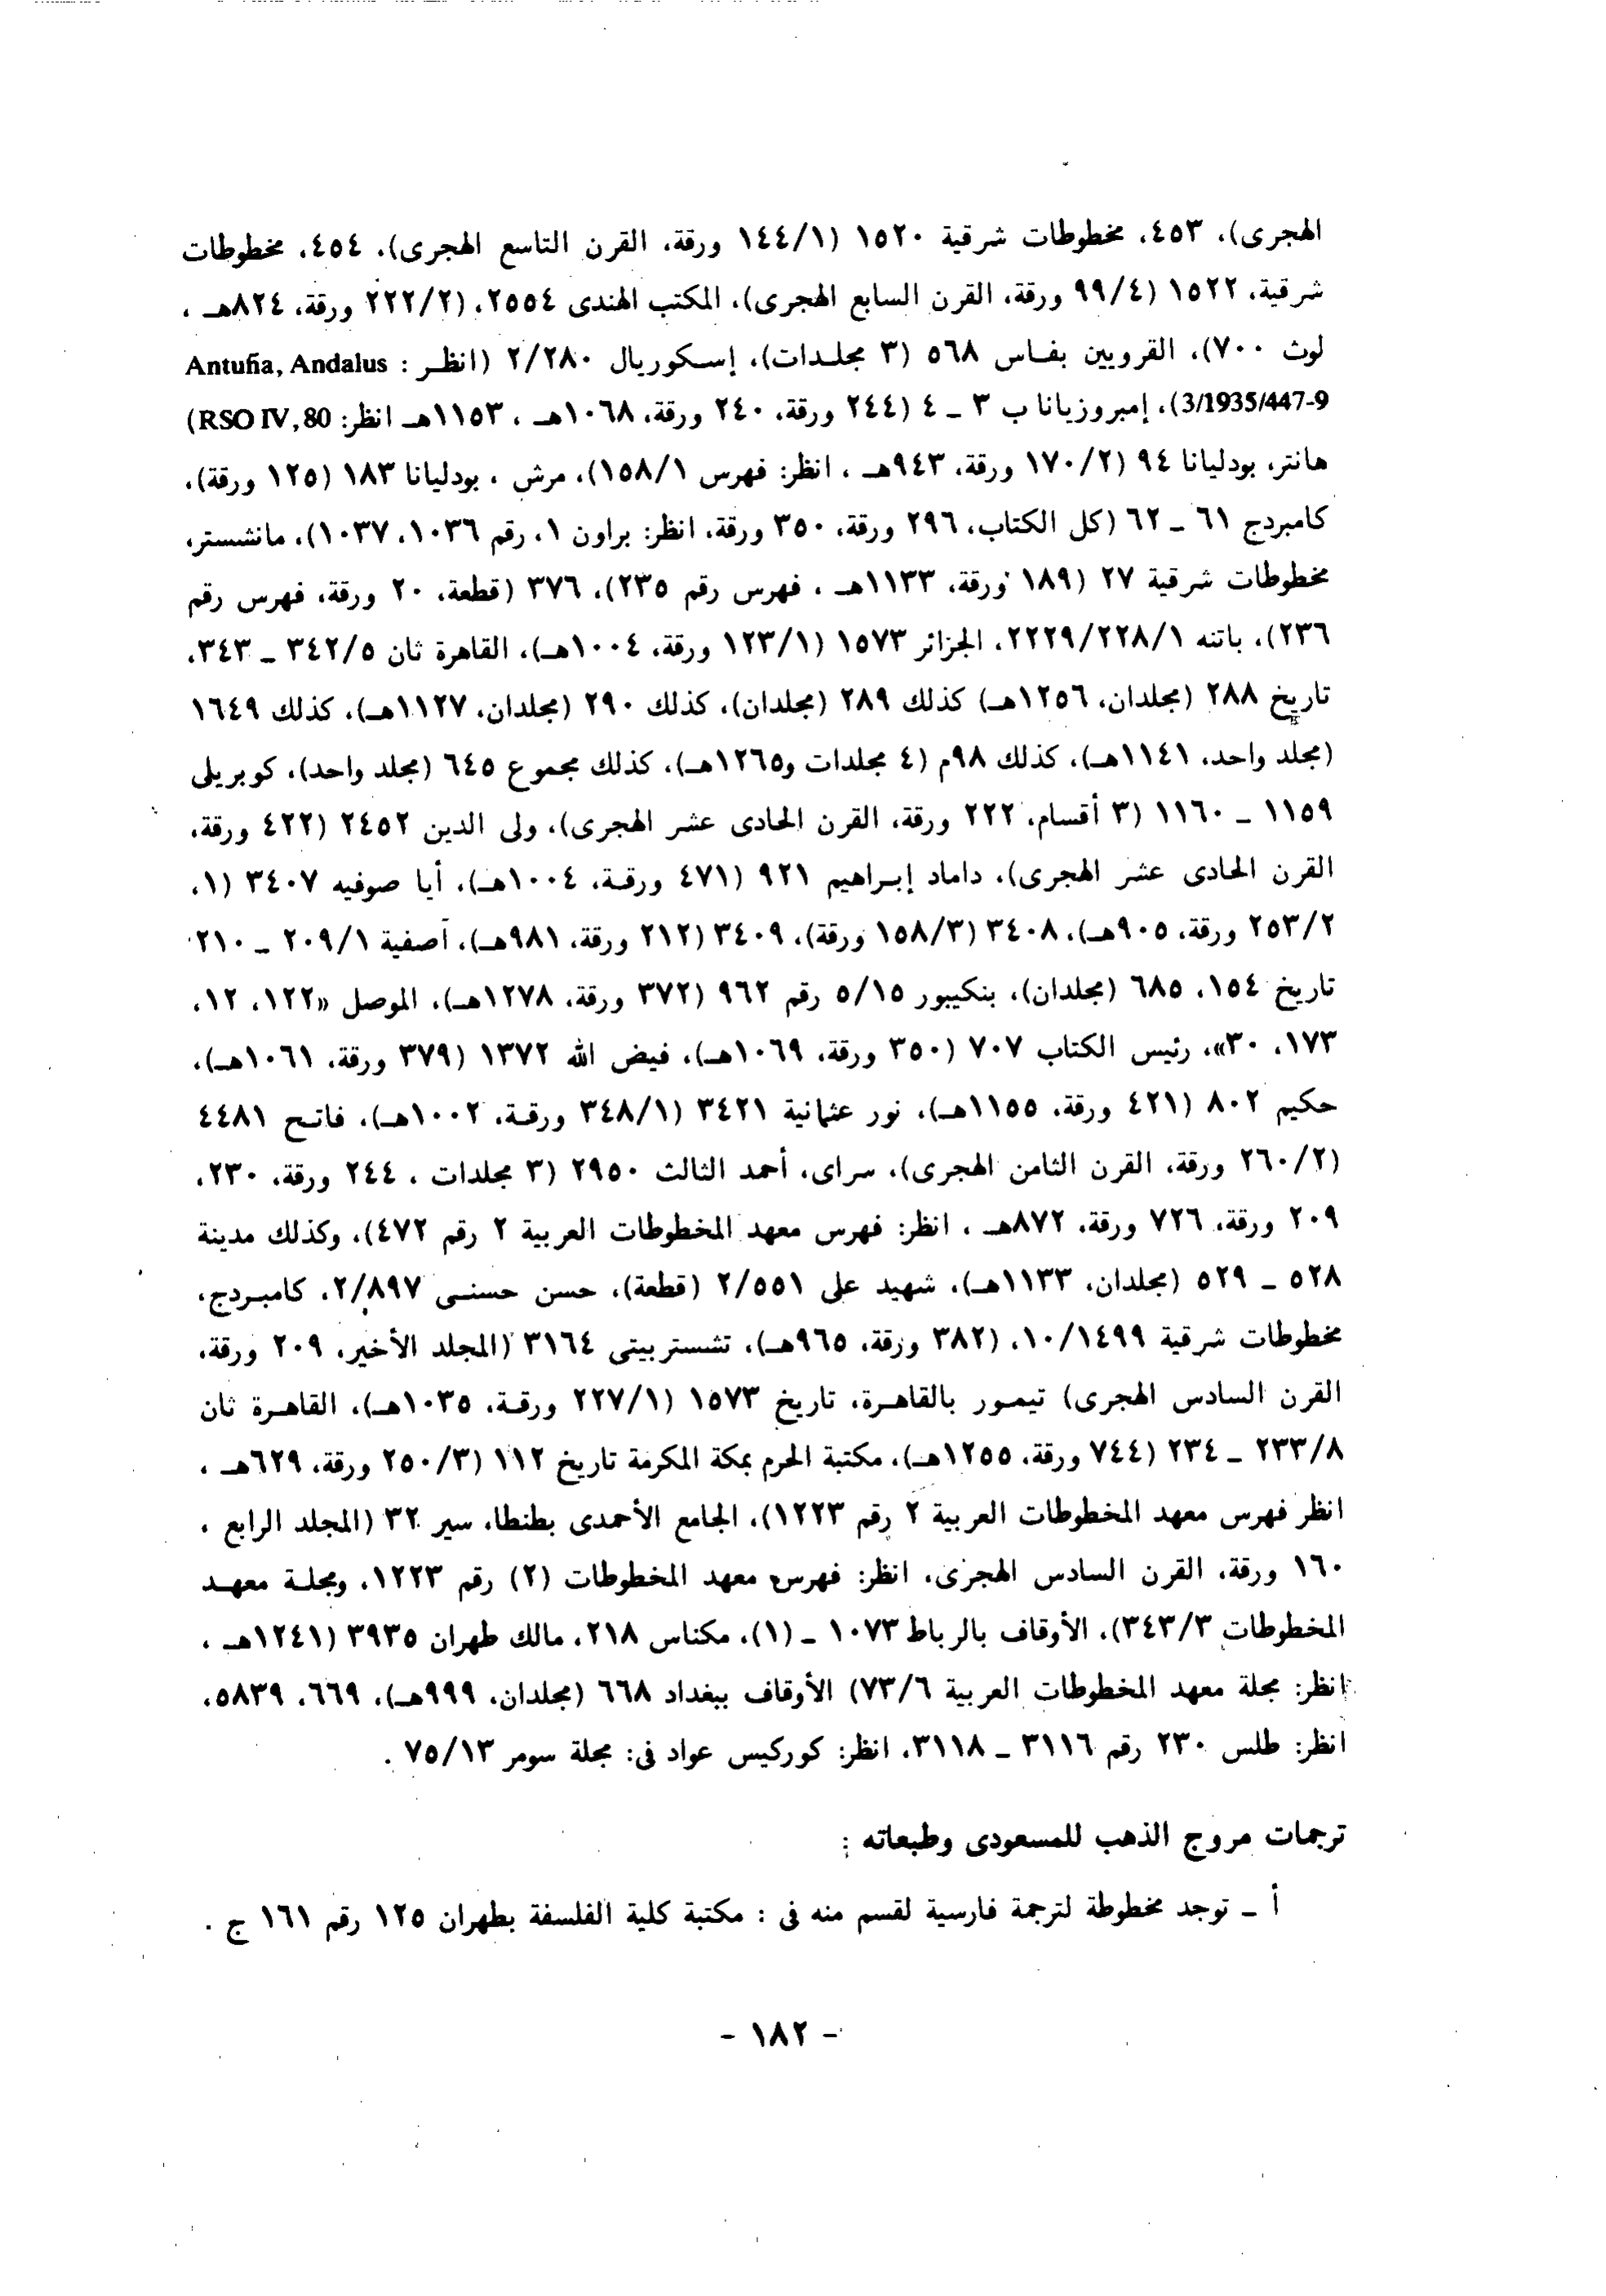 الهجرى)، ٤٥٣، مخطوطات شرقية ١٥٢٠ (١٤٤/١ ورقة، القرن التاسع الهجرى)، ٤٥٤، مخطوطات
شرقية، ١٥٢٢ (٩٩/٤ ورقة، القرن السابع الهجرى)، المكتب الهندى ٢٥٥٤، (٢٢٢/٢ ورقة، ٨٢٤هـ ،
لوث ٧٠٠)، القرويين بفاس ٥٦٨ (٣ مجلدات)، إسكوريال ٢/٢٨٠ (انظر : Antuña, Andalus
3/1935/447-9)، إمبروزيانا ب ٣ ـ ٤ (٢٤٤ ورقة، ٢٤٠ ورقة، ١٠٦٨هـ ، ١١٥٣هـ انظر: RSO IV, 80)
هانتر، بودليانا ٩٤ (١٧٠/٢ ورقة، ٩٤٣هـ ، انظر: فهرس ١٥٨/١)، مرش ، بودليانا ١٨٣ (١٢٥ ورقة)،
كامبردج ٦١ ـ ٦٢ (كل الكتاب، ٢٩٦ ورقة، ٣٥٠ ورقة، انظر: براون ١، رقم ١٠٣٦، ١٠٣٧)، مانشستر،
مخطوطات شرقية ٢٧ (١٨٩ ورقة، ١١٣٣هـ ، فهرس رقم ٢٣٥)، ٣٧٦ (قطعة، ٢٠ ورقة، فهرس رقم
٢٣٦)، باتنه ٢٢٢٩/٢٢٨/١، الجزائر ١٥٧٣ (١٢٣/١ ورقة، ١٠٠٤هـ)، القاهرة ثان ٣٤٢/٥ ـ ٣٤٣،
تاريخ ٢٨٨ (مجلدان، ١٢٥٦هـ) كذلك ٢٨٩ (مجلدان)، كذلك ٢٩٠ (مجلدان، ١١٢٧هـ)، كذلك ١٦٤٩
(مجلد واحد، ١١٤١هـ)، كذلك ٩٨م (٤ مجلدات و١٢٦٥هـ)، كذلك مجموع ٦٤٥ (مجلد واحد)، كوبريلى
١١٥٩ ـ ١١٦٠ (٣ أقسام، ٢٢٢ ورقة، القرن الحادى عشر الهجرى)، ولى الدين ٢٤٥٢ (٤٢٢ ورقة،
القرن الحادى عشر الهجرى)، داماد إبراهيم ٩٢١ (٤٧١ ورقة، ١٠٠٤هـ)، أيا صوفيه ٣٤٠٧ (١،
٢٥٣/٢ ورقة، ٩٠٥هـ)، ٣٤٠٨ (١٥٨/٣ ورقة)، ٣٤٠٩ (٢١٢ ورقة، ٩٨١هـ)، آصفية ٢٠٩/١ ـ ٢١٠
تاريخ ١٥٤، ٦٨٥ (مجلدان)، بنكيبور ٥/١٥ رقم ٩٦٢ (٣٧٢ ورقة، ١٢٧٨هـ)، الموصل «١٢٢، ١٢،
١٧٣، ٣٠»، رئيس الكتاب ٧٠٧ (٣٥٠ ورقة، ١٠٦٩هـ)، فيض الله ١٣٧٢ (٣٧٩ ورقة، ١٠٦١هـ)،
حكيم ٨٠٢ (٤٢١ ورقة، ١١٥٥هـ)، نور عثمانية ٣٤٢١ (٣٤٨/١ ورقة، ١٠٠٢هـ)، فاتح ٤٤٨١
(٢٦٠/٢ ورقة، القرن الثامن الهجرى)، سراى، أحمد الثالث ٢٩٥٠ (٣ مجلدات ، ٢٤٤ ورقة، ٢٣٠،
٢٠٩ ورقة، ٧٢٦ ورقة، ٨٧٢هـ ، انظر: فهرس معهد المخطوطات العربية ٢ رقم ٤٧٢)، وكذلك مدينة
٥٢٨ ـ ٥٢٩ (مجلدان، ١١٣٣هـ)، شهيد على ٢/٥٥١ (قطعة)، حسن حسنى ٢/٨٩٧، كامبردج،
مخطوطات شرقية ١٠/١٤٩٩، (٣٨٢ ورقة، ٩٦٥هـ)، تشستربيتى ٣١٦٤ (المجلد الأخير، ٢٠٩ ورقة،
القرن السادس الهجرى) تيمور بالقاهرة، تاريخ ١٥٧٣ (٢٢٧/١ ورقة، ١٠٣٥هـ)، القاهرة ثان
٢٣٣/٨ ـ ٢٣٤ (٧٤٤ ورقة، ١٢٥٥هـ)، مكتبة الحرم بمكة المكرمة تاريخ ١١٢ (٢٥٠/٣ ورقة، ٦٢٩هـ ،
انظر فهرس معهد المخطوطات العربية ٢ رقم ١٢٢٣)، الجامع الأحمدى بطنطا، سير ٣٢ (المجلد الرابع ،
١٦٠ ورقة، القرن السادس الهجرى، انظر: فهرس معهد المخطوطات (٢) رقم ١٢٢٣، ومجلة معهد
المخطوطات ٣٤٣/٣)، الأوقاف بالرباط ١٠٧٣ ـ (١)، مكناس ٢١٨، مالك طهران ٣٩٣٥ (١٢٤١هـ ،
انظر: مجلة معهد المخطوطات العربية ٧٣/٦) الأوقاف ببغداد ٦٦٨ (مجلدان، ٩٩٩هـ)، ٦٦٩، ٥٨٣٩،
انظر: طلس ٢٣٠ رقم ٣١١٦ ـ ٣١١٨، انظر: كوركيس عواد فى: مجلة سومر ٧٥/١٣ .
ترجمات مروج الذهب للمسعودى وطبعاته :
أ ـ توجد مخطوطة لترجمة فارسية لقسم منه فى : مكتبة كلية الفلسفة بطهران ١٢٥ رقم ١٦١ ج .
- ١٨٢ -